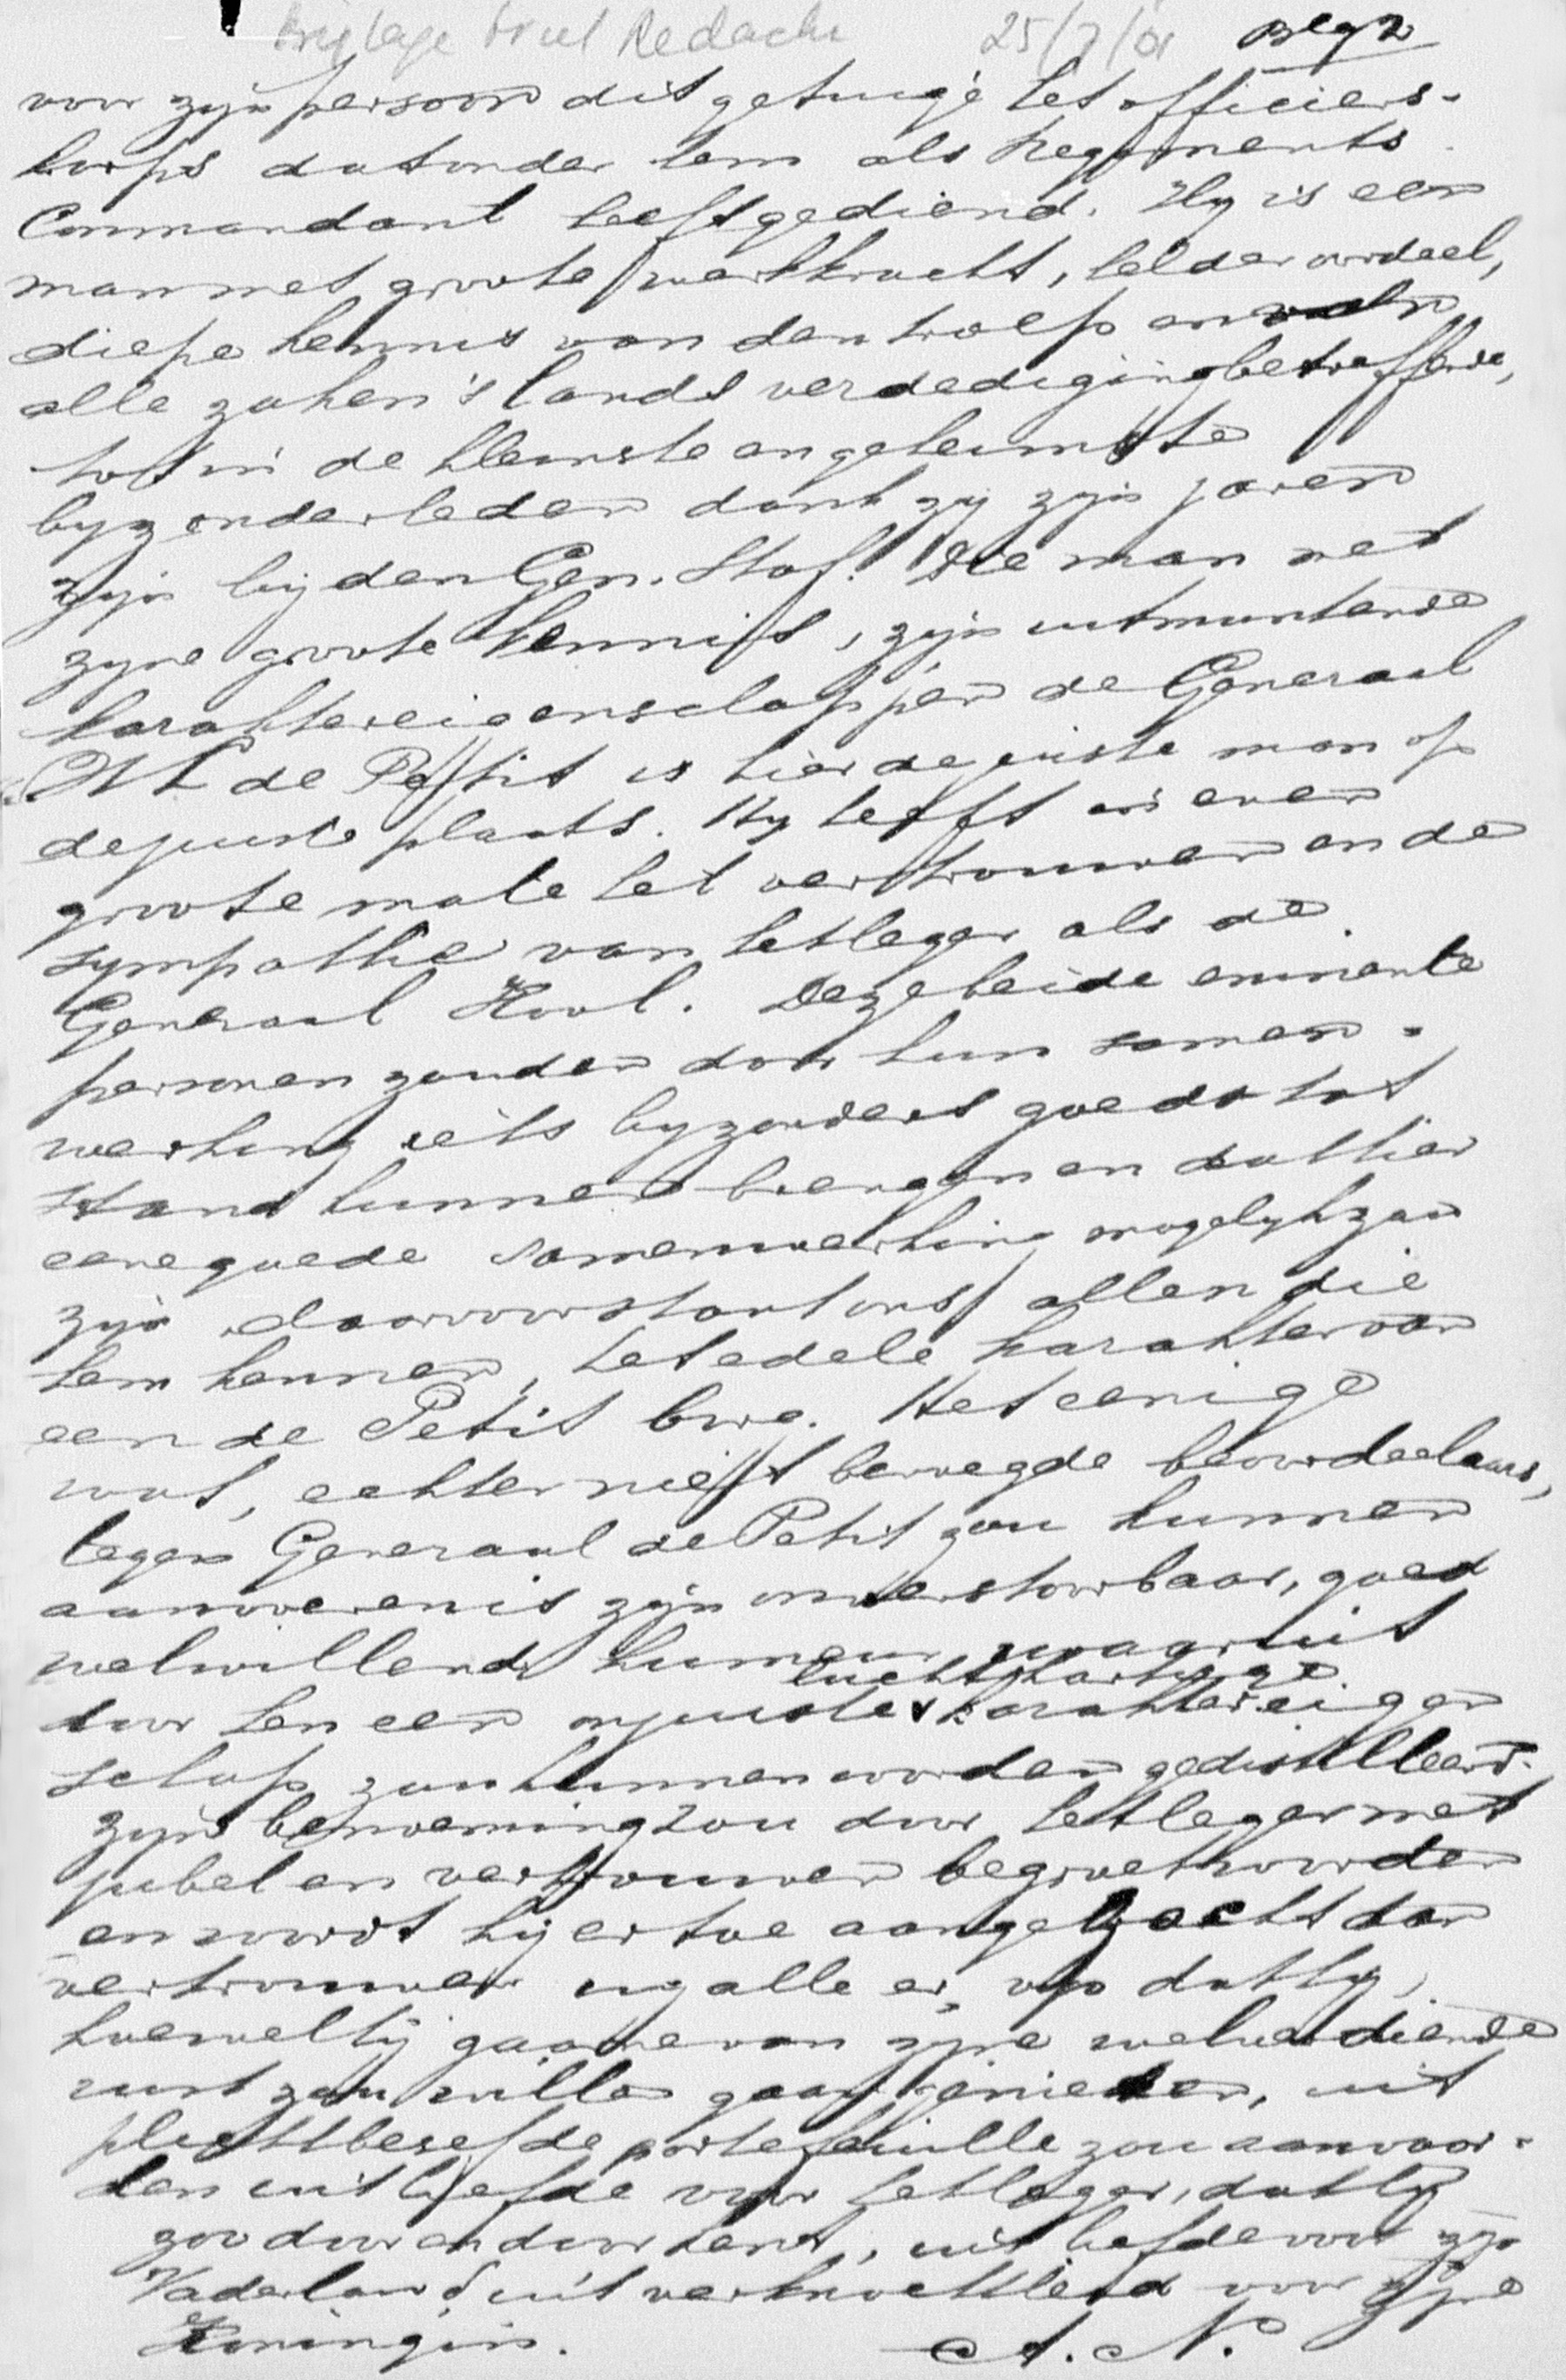 Bijlage Brief Redactie 25/7/01 Blz 2
voor zijn persoon dit getuige het officiers-
korps dat onder hem als Regiments
Commandant heeft gediend. Hy is een
man met groote werkkracht, helder oordeel,
diepe kennis van den troep en van
alle zaken 's lands verdediging betreffende,
tot in de kleinste en geheimste
byzonderheden dank zij zijn jaren
zijn bij den Gen. Staf. Die man met
zyne groote kennis, zijn uitmuntende
karaktereigenschappen de Generaal
de Petit is hier de juiste man op
de juiste plaats. Hy heeft in even
groote mate het vertrouwen en de
sympathie van het leger als de
Generaal Kool. Deze beide eminente
personen zouden door hun samen-
werking iets byzonders goeds tot
stand kunnen brengen en dat hier
eene goede samenwerking mogelyk zou
zijn daarvoor staat ons, allen die
hem kennen, het edele karakter van
een de Petit borg. Het eenige
wat, echter niet bevoegde beoordeelaars,
tegen Generaal de Petit zou kunnen
aanvoeren is zijn onverstoorbaar, goed
welwillend humeur, waaruit
luchthartige
door hen een onjuiste karaktereigen
schap zou kunnen worden gedistilleerd.
zijn benoeming zou door het leger met
jubel en vertrouwen begroet worden
en wordt hij er toe aangezocht dan
vertrouwen wy alle er op dat hy,
hoewel hij gaarne van zyne welverdiende
rust zou willen gaan genieten, uit
plichtbesef de portefeuille zou aanvaar-
den uit liefde voor het leger, dat hy
zoo door en door kent, uit liefde voor zijn
Vaderland uit verknochtheid voor zyne
Koningin. A. N.